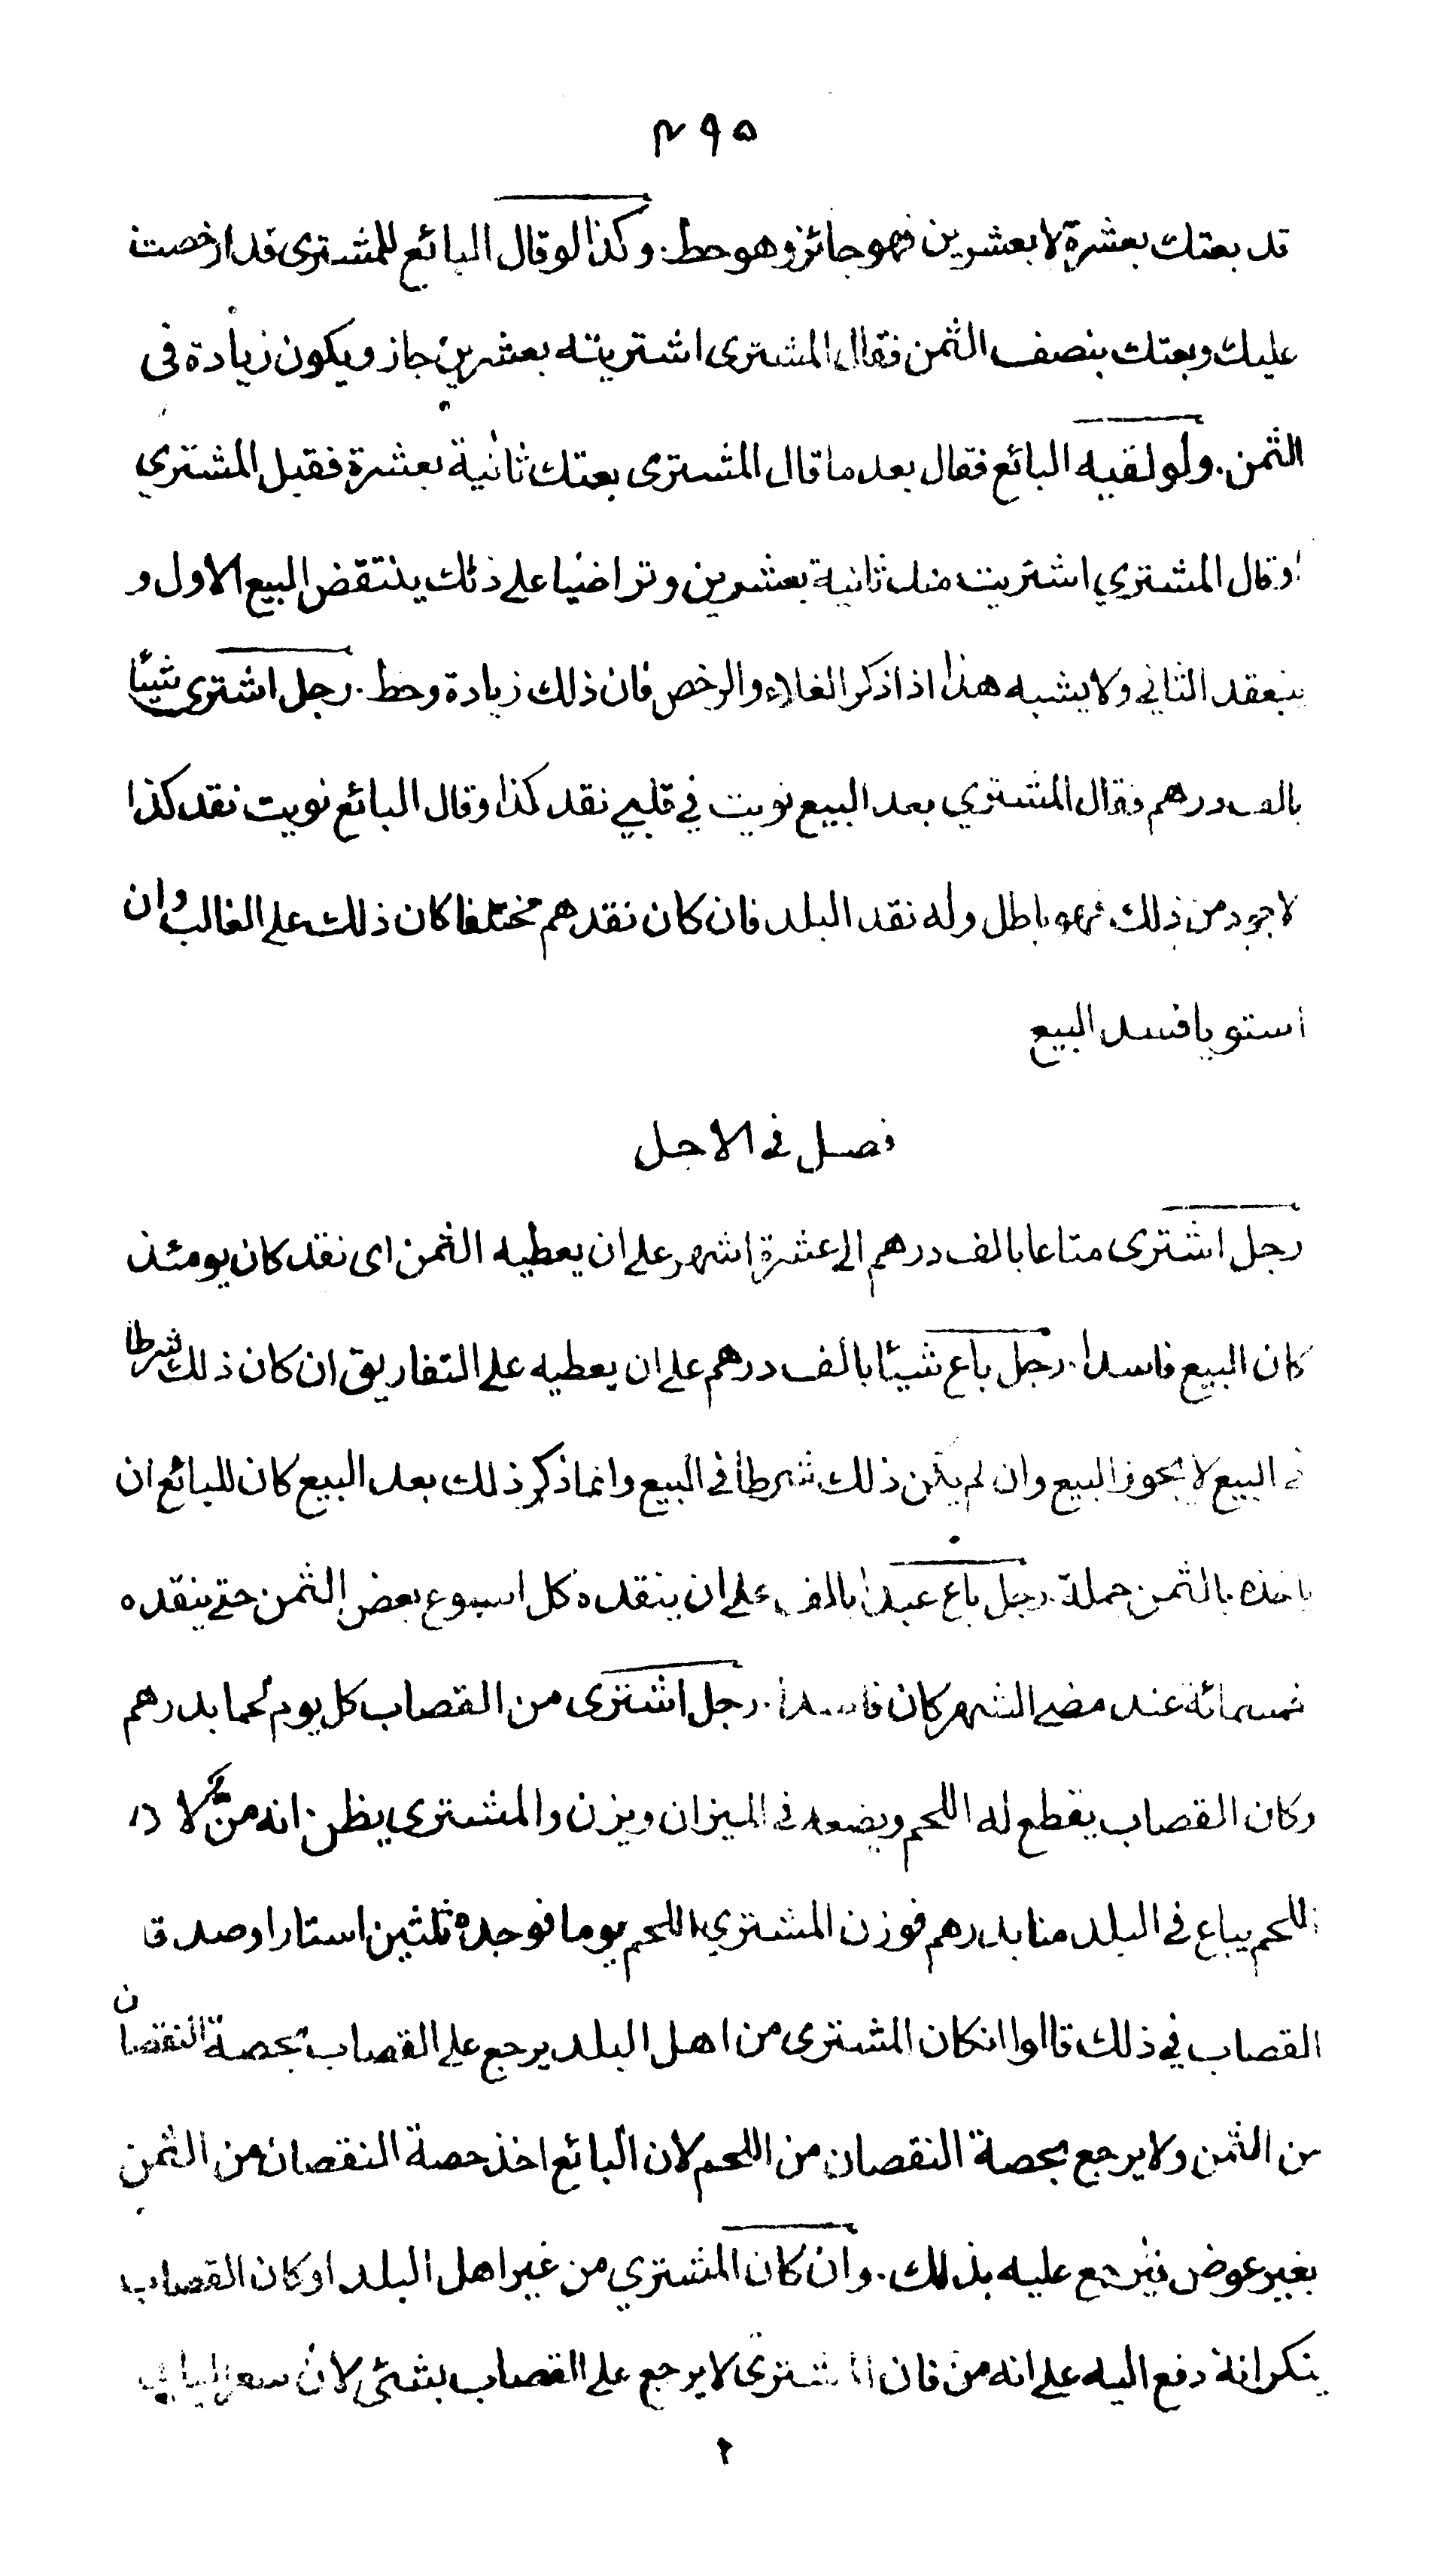 ۴۹۵
قد بعتك بعشرة لا بعشرين فهو جائز وهو حط. وكذا لو قال البائع للمشترى قد ارخصت
عليك وبعتك بنصف الثمن فقال المشترى اشتريته بعشرين جاز ويكون زيادة فى
الثمن. ولو لقيه البائع فقال بعد ما قال المشترى بعتك ثانية بعشرة فقبل المشتري
او قال المشتري اشتريت منك ثانية بعشرين وتراضيا على ذلك ينتقض البيع الاول و
ينعقد الثاني ولا يشبه هذا اذا ذكر الغلاء والرخص فان ذلك زيادة وحط. رجل اشترى شيئا
بالف درهم فقال المشتري بعد البيع نويت في قلبي نقد كذا وقال البائع نويت نقد كذا
لاجود من ذلك فهو باطل وله نقد البلد فان كان نقدهم مختلفا كان ذلك على الغالب وان
استويا فسد البيع
فصل فى الاجل
رجل اشترى متاعا بالف درهم الى عشرة اشهر على ان يعطيه الثمن اى نقد كان يومئذ
كان البيع فاسدا. رجل باع شيئا بالف درهم على ان يعطيه على التفاريق ان كان ذلك شرطا
فى البيع لا يجوز البيع وان لم يكن ذلك شرطا فى البيع وانما ذكر ذلك بعد البيع كان للبائع ان
ياخذه بالثمن جملة. رجل باع عبدا بالف على ان ينقده كل اسبوع بعض الثمن حتى ينقده
خمسمائة عند مضى الشهر كان فاسدا. رجل اشترى من القصاب كل يوم لحما بدرهم
وكان القصاب يقطع له اللحم ويضعه فى الميزان ويزن والمشترى يظن انه من لان
اللحم يباع فى البلد منا بدرهم فوزن المشتري اللحم يوما فوجده ثلثين استارا وصدقا
القصاب في ذلك قالوا انكان المشترى من اهل البلد يرجع على القصاب بحصة النقصان
من الثمن ولا يرجع بحصة النقصان من اللحم لان البائع اخذ حصة النقصان من الثمن
بغير عوض فيرجع عليه بذلك. وان كان المشتري من غير اهل البلد او كان القصاب
ينكر انه دفع اليه على انه من فان المشترى لا يرجع على القصاب بشئى لان سعر البلد